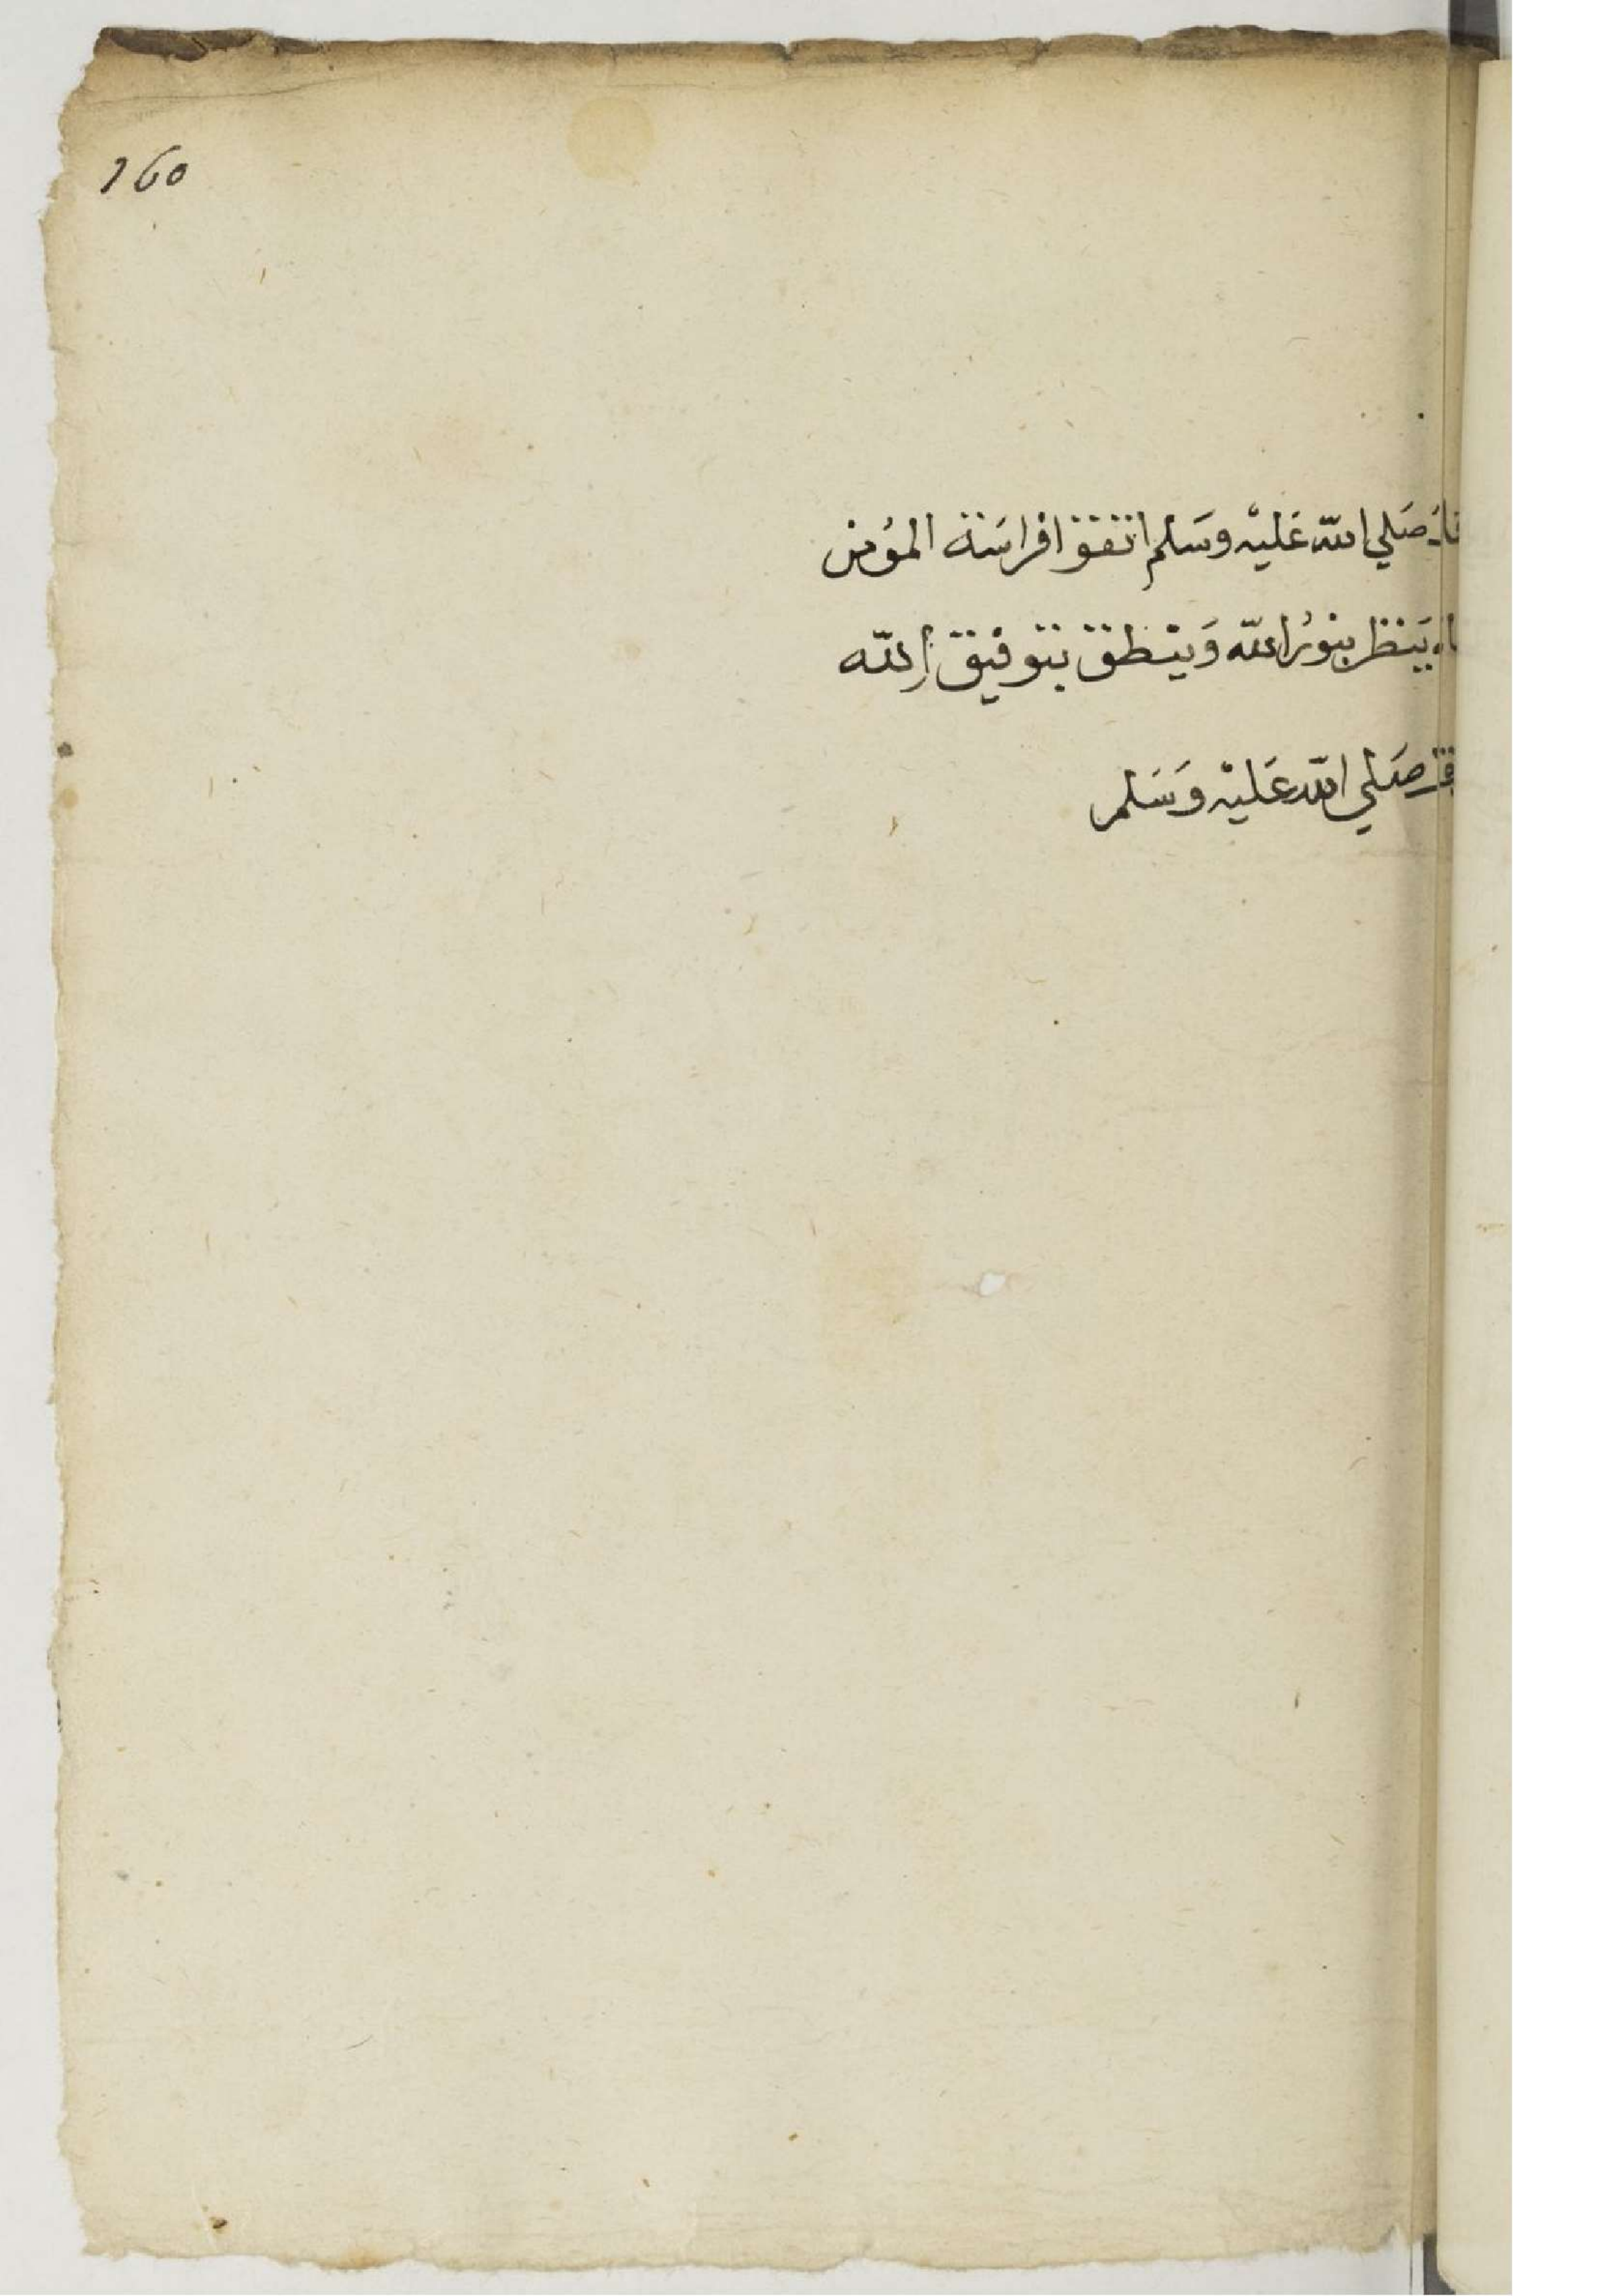 160
صَلي الله عَليْه وسَلم اتقوا فراسَة المؤمن
يَنظر بنورُ الله وَينْطق بتوفيق الله
صَلي الله عَليْه وَسَلم